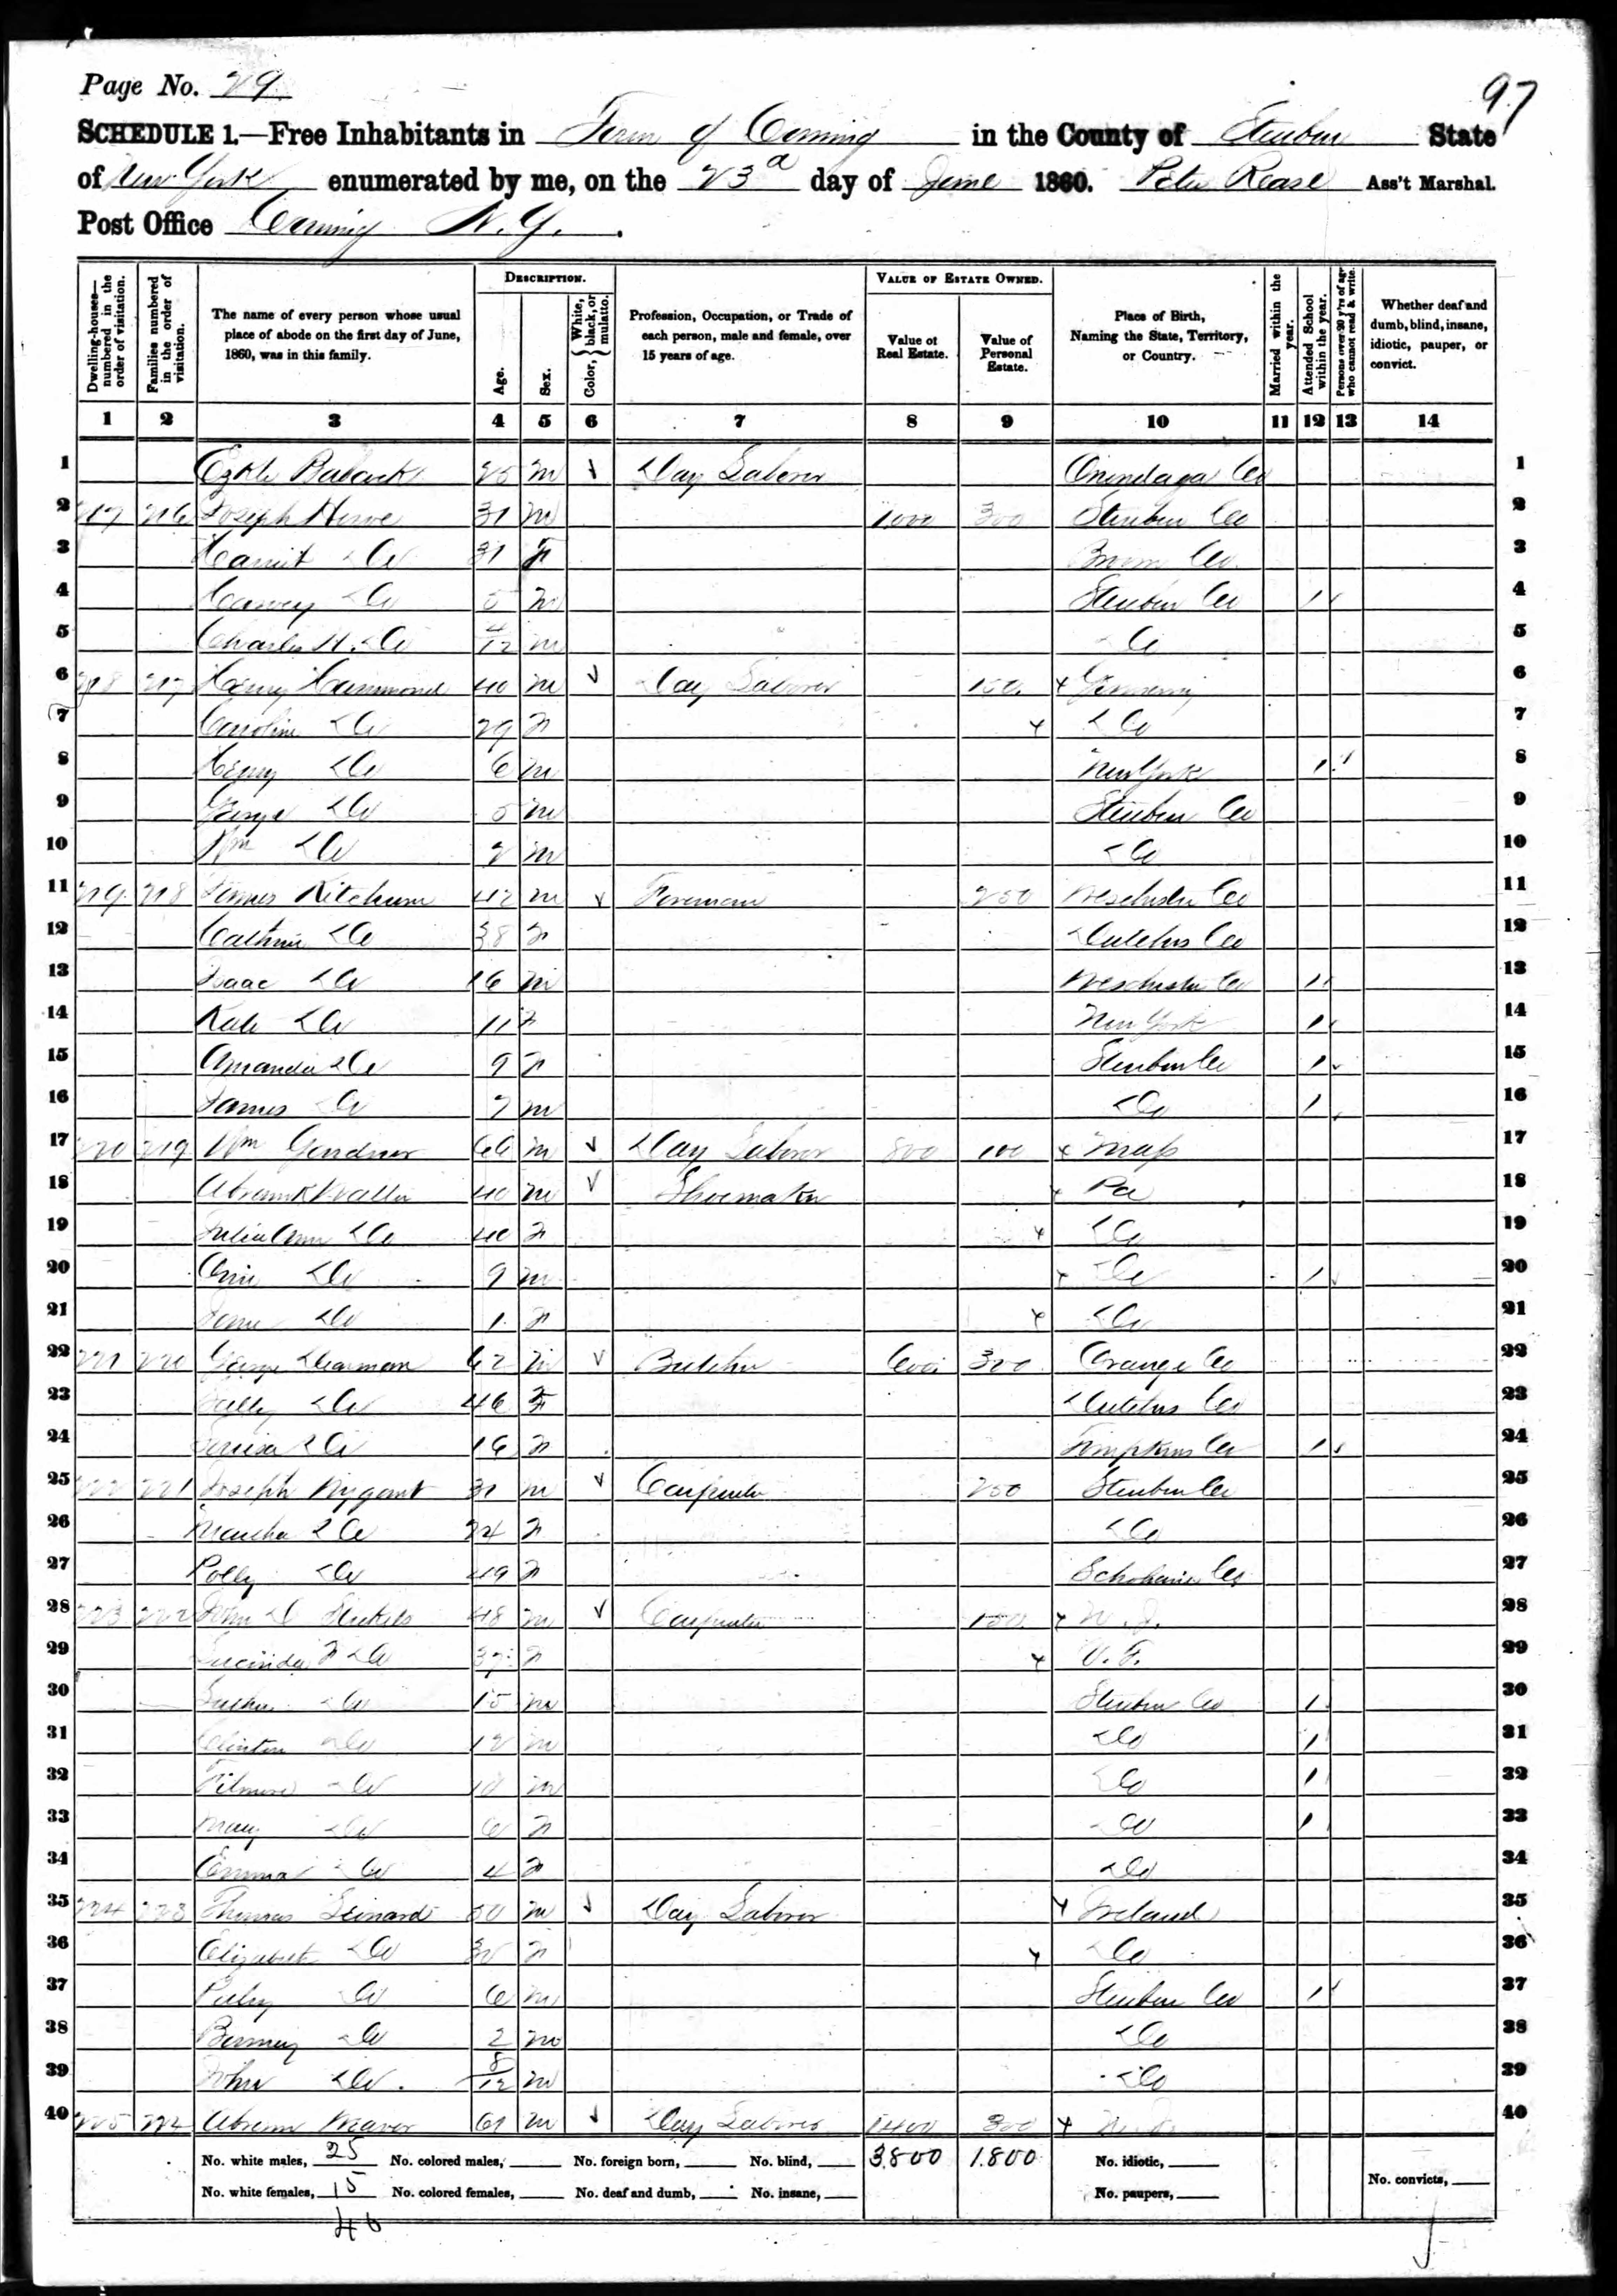 Page No. 29
97
SCHEDULE 1.—Free Inhabitants in Town of Corning in the County of Steuben State
of New York enumerated by me, on the 23d day of June 1860. Peter Rease Ass't Marshal.
Post Office Corning N.Y.
Dwelling-houses—numbered in the order of visitation. Families numbered in the order of visitation. The name of every person whose usual place of abode on the first day of June, 1860, was in this family. DESCRIPTION. Age. Sex. Color, White, black, or mulatto. Profession, Occupation, or Trade of each person, male and female, over 15 years of age. VALUE OF ESTATE OWNED. Value of Real Estate. Value of Personal Estate. Place of Birth, Naming the State, Territory, or Country. Married within the year. Attended School within the year. Persons over 20 y'rs of age who cannot read & write. Whether deaf and dumb, blind, insane, idiotic, pauper, or convict.
1 2 3 4 5 6 7 8 9 10 11 12 13 14
1 Babcock 25 m Day Laborer Onondaga Co 1
2 217 216 Joseph 31 m 1000 300 Steuben Co 2
3 Harriet Do 31 F Co 3
4 Harvey Do 5 m Steuben Co 1 4
5 Charles H. Do 4/12 m Do 5
6 218 217 Henry Hammond 40 m Day Laborer 150 Germany 6
7 Caroline Do 29 F Do 7
8 Henry Do 6 m New York 1 8
9 George Do 5 m Steuben Co 9
10 Wm Do 2 m Do 10
11 219 218 James Ketchum 42 m Foreman 200 Weschester Co 11
12 Do 38 F Dutchus Co 12
13 Isaac Do 16 m Weschester Co 1 13
14 Kate Do 11 F New York 1 14
15 Amanda Do 9 F Steuben Co 1 15
16 James Do 7 m Do 1 16
17 220 219 Wm Gardner 66 m Day Laborer 800 100 Mass 17
18 Abram 40 m Shoemaker Pa 18
19 Julia Ann Do 40 F Do 19
20 Do 9 m Do 1 20
21 Do 1 F Do 21
22 221 220 George 62 m Butcher 600 300 Orange Co 22
23 Do 46 F Dutchus Co 23
24 Do 16 F Tompkins Co 1 24
25 222 221 Joseph Wygant 31 m Carpenter 200 Steuben Co 25
26 Martha Do 24 F Do 26
27 Polly Do 49 F Schoharie Co 27
28 223 222 John D 48 m Carpenter 150 N. J. 28
29 Lucinda Do F 29
30 Do 15 m Steuben Co 1 30
31 Clinton Do 12 m Do 1 31
32 Filmore Do 10 m Do 1 32
33 Mary Do 6 F Do 1 33
34 Emma Do 4 F Do 34
35 224 223 Thomas Leinard m Day Laborer Ireland 35
36 Elizabeth Do F Do 36
37 Do 6 m Steuben Co 1 37
38 Do 2 m Do 38
39 John Do 8/12 m Do 39
40 225 224 Abram Weaver 61 m Day Laborer 1400 300 40
No. white males, 25 No. colored males, No. foreign born, No. blind, 3.800 1.800 No. idiotic,
No. white females, 15 No. colored females, No. deaf and dumb, No. insane, No. paupers, No. convicts,
40